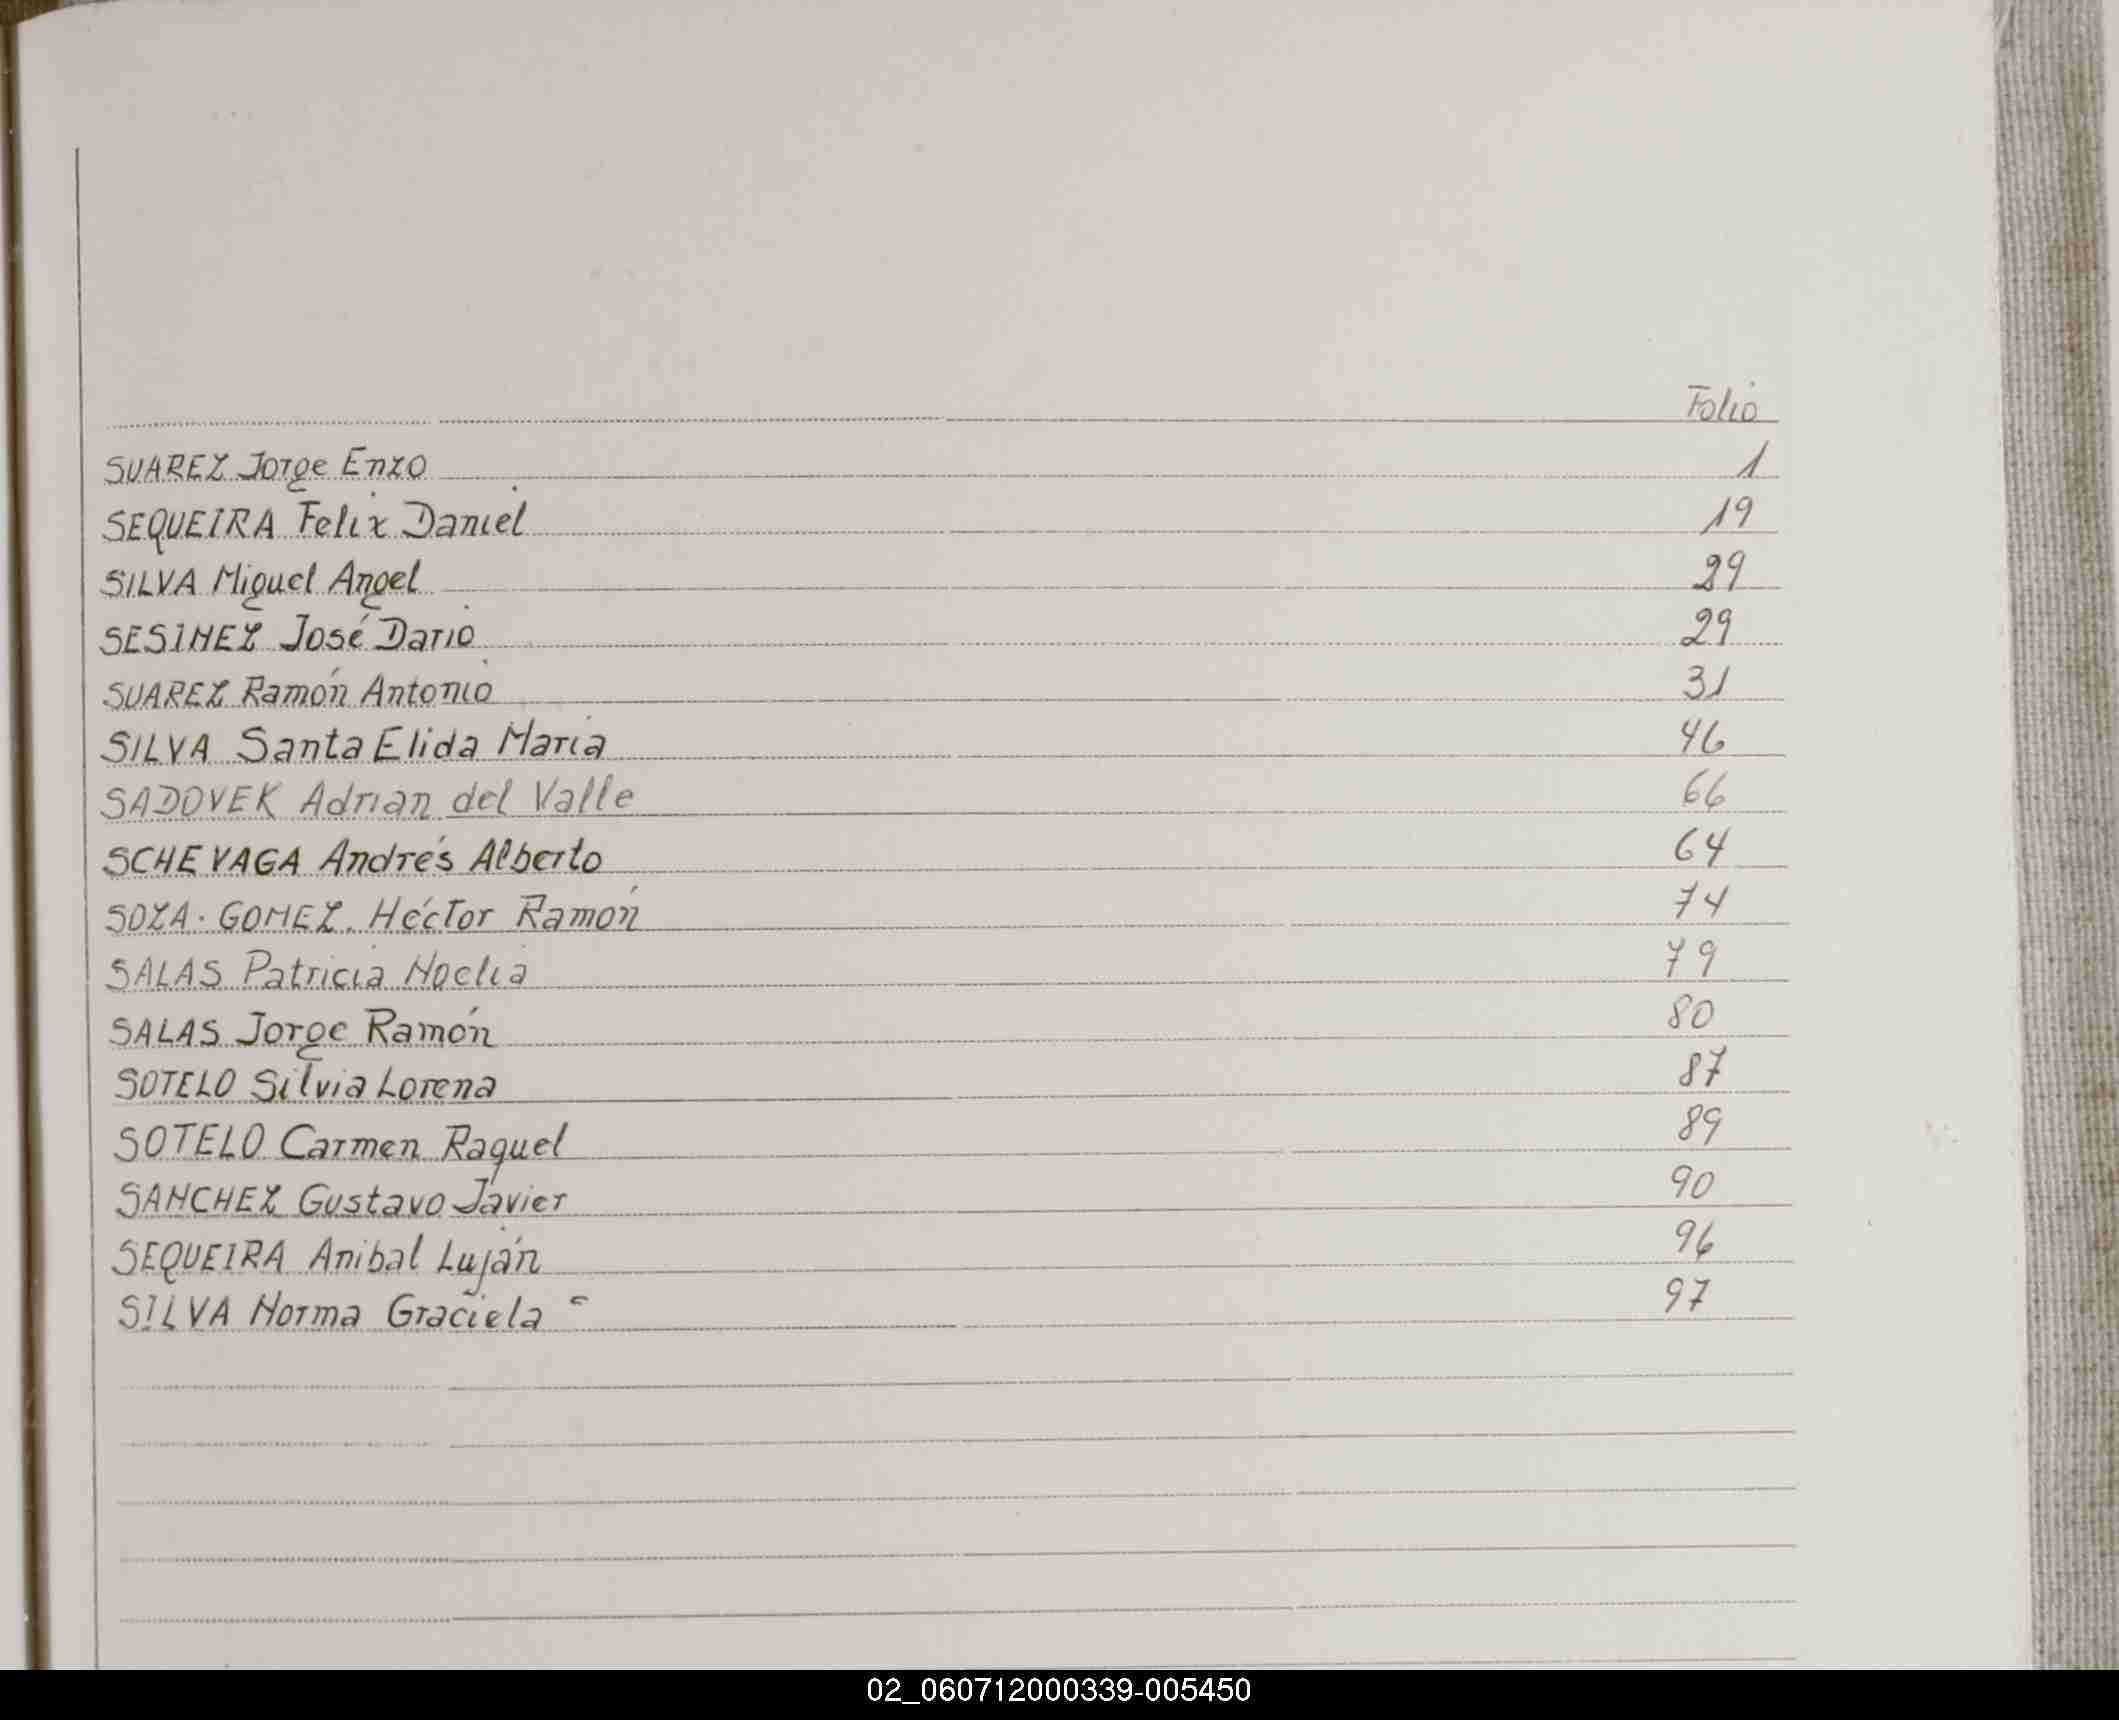 Folio
SUAREZ Jorge Enzo 1
SEQUEIRA Felix Daniel 19
SILVA Miguel Angel 29
SESINEZ José Dario 29
SUAREZ Ramón Antonio 31
SILVA Santa Elida Maria 46
SADOVEK Adrian del Valle 66
SCHEVAGA Andrés Alberto 64
SOZA. GOMEZ. Héctor Ramón 74
SALAS Patricia Noelia 79
SALAS Jorge Ramón 80
SOTELO Silvia Lorena 87
SOTELO Carmen Raquel 89
SANCHEZ Gustavo Javier 90
SEQUEIRA Anibal Luján 96
SILVA Norma Graciela 97
02_060712000339-005450